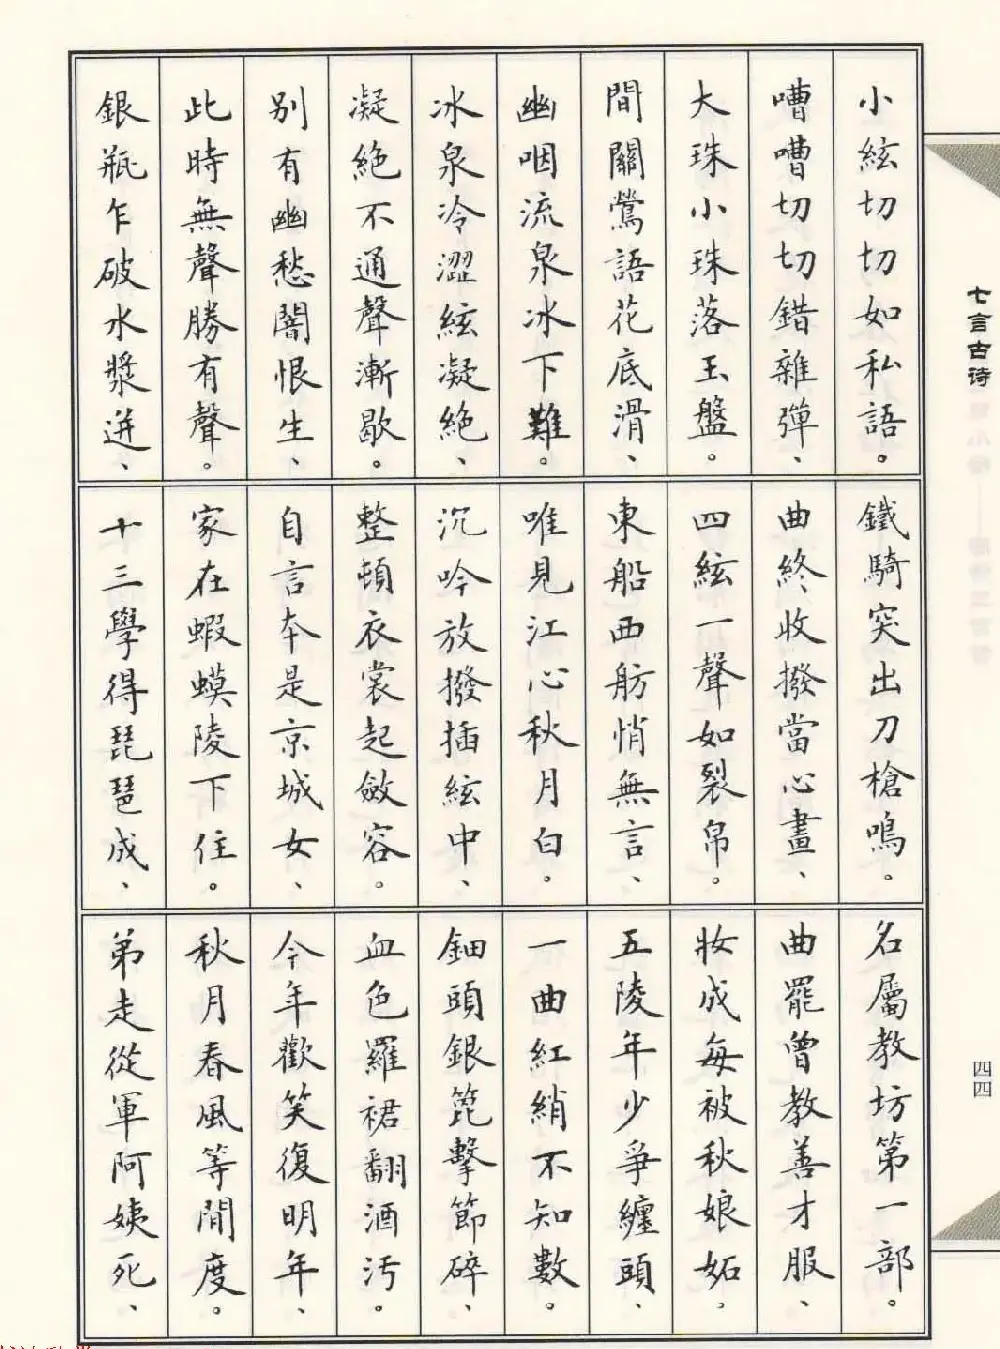 小絃切切如私語。
嘈嘈切切錯雜彈、
大珠小珠落玉盤。
間關鶯語花底滑、
幽咽流泉冰下難。
冰泉冷澀絃凝絶、
凝絶不通聲漸歇。
别有幽愁闇恨生、
此時無聲勝有聲。
銀瓶乍破水漿迸、
鐵騎突出刀槍鳴。
曲終收撥當心畫、
四絃一聲如裂帛。
東船西舫悄無言、
唯見江心秋月白。
沉吟放撥插絃中、
整頓衣裳起斂容。
自言本是京城女、
家在蝦蟆陵下住。
十三學得琵琶成、
名屬教坊第一部。
曲罷曾教善才服、
妝成每被秋娘妬。
五陵年少爭纏頭、
一曲紅綃不知數。
鈿頭銀箆擊節碎、
血色羅裙翻酒污。
今年歡笑復明年、
秋月春風等閒度。
弟走從軍阿姨死、
七言古诗
四四